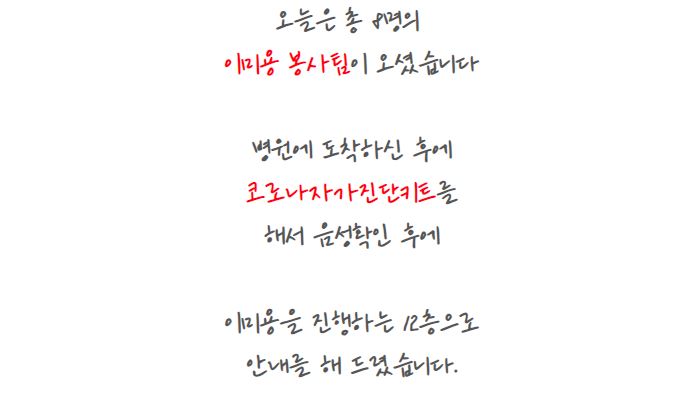 오늘은 총 8명의
이미용 봉사팀이 오셨습니다
병원에 도착하신 후에
코로나자가진단키트를
해서 음성확인 후에
이미용을 진행하는 12층으로
안내를 해 드렸습니다.